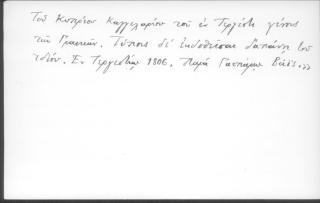 Τοῦ Κυπρίου Καγγελαρίου τοῦ ἐν Τεργέστῃ γένους
τῶν Γραικῶν. Τύποις δὲ ἐκδοθεῖσαι δαπάνῃ του
ἰδίου. Ἐν Τεργέστῃ 1806. Παρὰ Γασπάρῳ Βάϊς.»